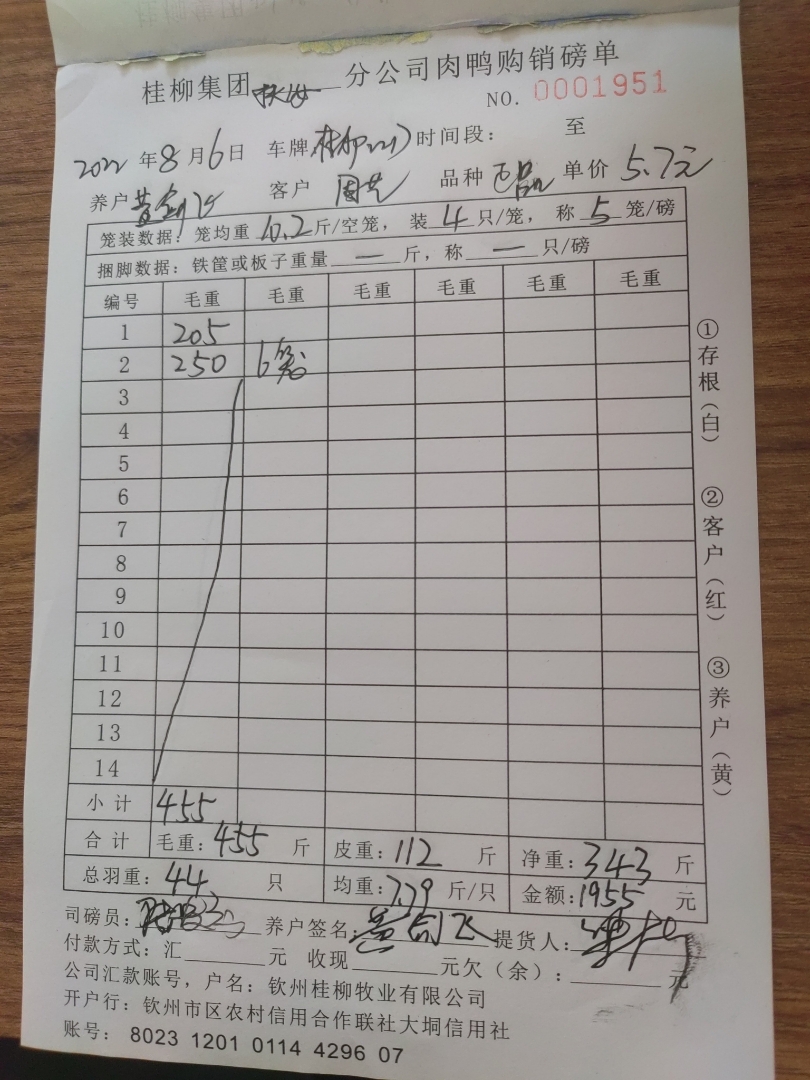 桂柳集团 分公司肉鸭购销磅单
NO. 0001951
2022 年 8 月 6 日 车牌 桂柳 时间段： 至
养户 黄剑飞 客户 周艺 品种 单价 5.7元
笼装数据：笼均重 10.2 斤/空笼，装 4 只/笼，称 5 笼/磅
捆脚数据：铁筐或板子重量 — 斤，称 — 只/磅
编号 毛重 毛重 毛重 毛重 毛重 毛重
1 205
2 250 6笼
3
4
5
6
7
8
9
10
11
12
13
14
小计 455
合计 毛重：455 斤 皮重：112 斤 净重：343 斤
总羽重：44 只 均重：7.79 斤/只 金额：1955 元
司磅员： 养户签名：黄剑飞 提货人：
付款方式：汇 元 收现 元欠（余）： 元
公司汇款账号，户名：钦州桂柳牧业有限公司
开户行：钦州市区农村信用合作联社大垌信用社
账号：8023 1201 0114 4296 07
①存根（白） ②客户（红） ③养户（黄）